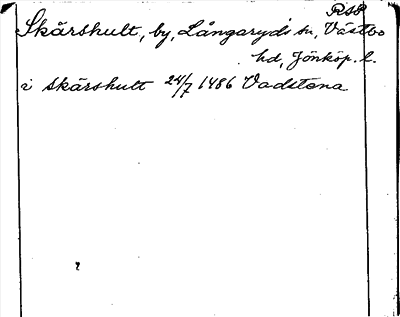 RSB
Skårshult, by, Långaryds sn, Västbo
hd, Jönköp. l.
i skårshult 24/7 1486 Vadstena